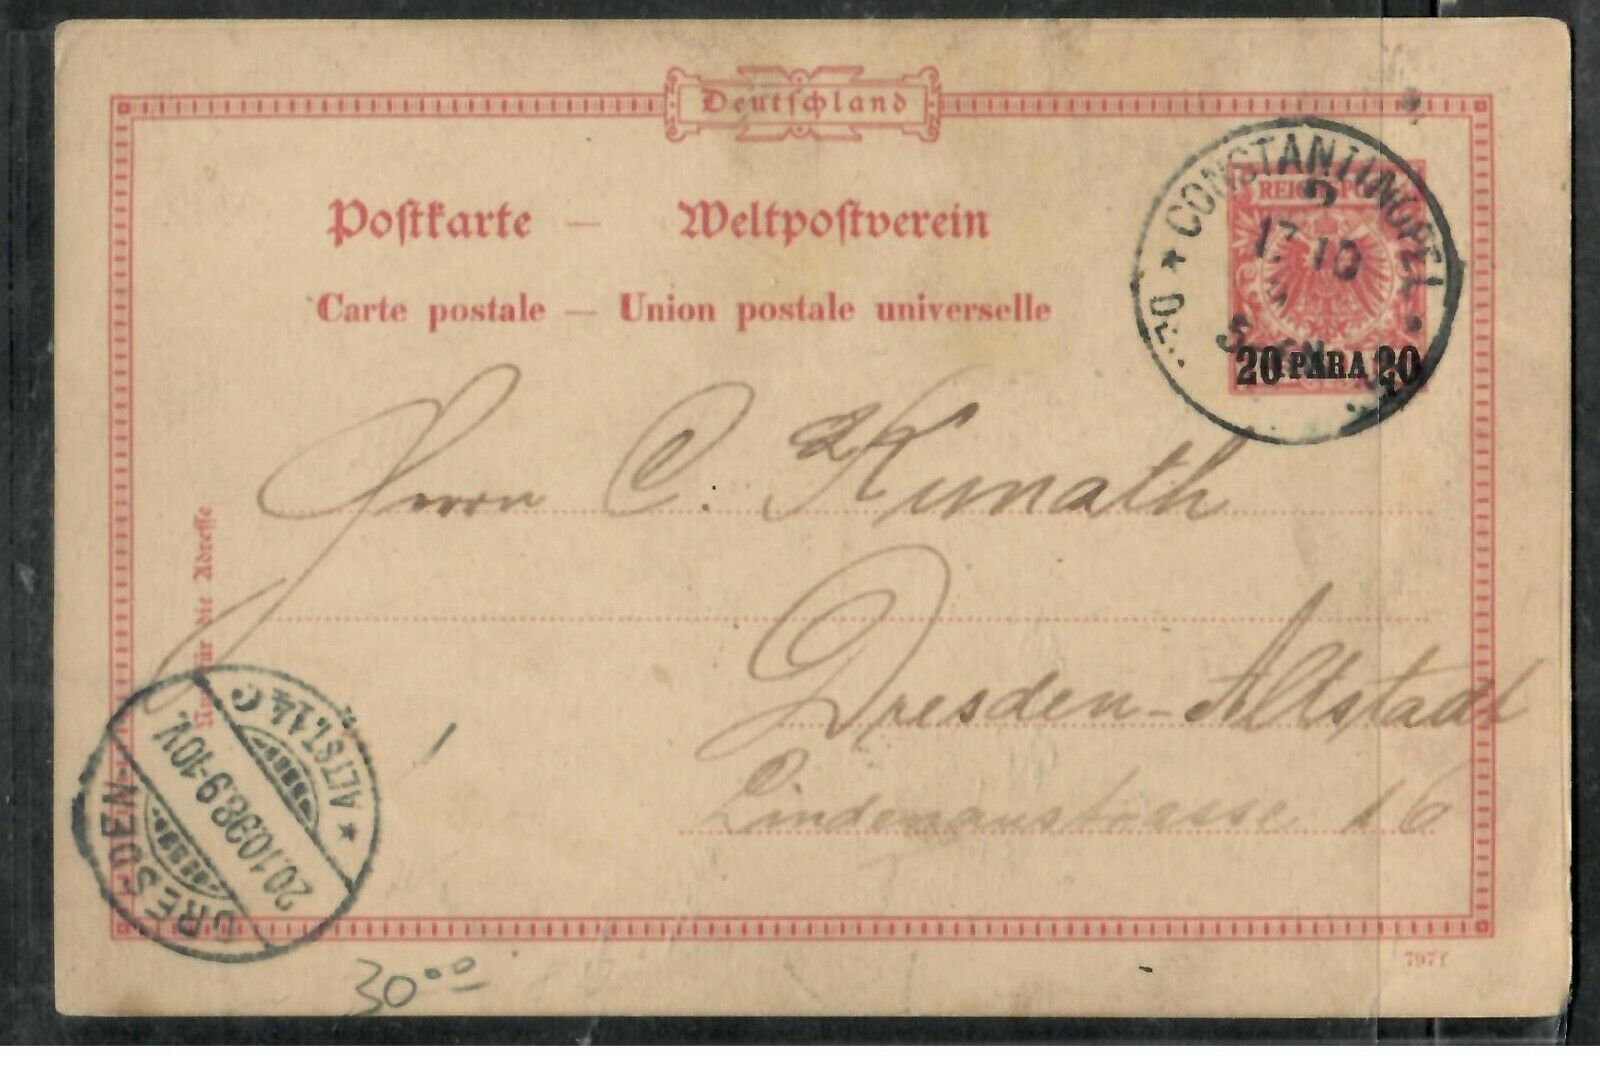 Deutschland
Postkarte — Weltpostverein
Carte postale — Union postale universelle
REICHSPOST
* CONSTANTINOPEL *
17 10
20 PARA 20
Herrn C. Kunath
Nur für die Adresse
Dresden-Altstadt
Lindenaustrasse 16
* ALTST. 14 C
20.10.98.9-10V.
DRESDEN
797f
30.00